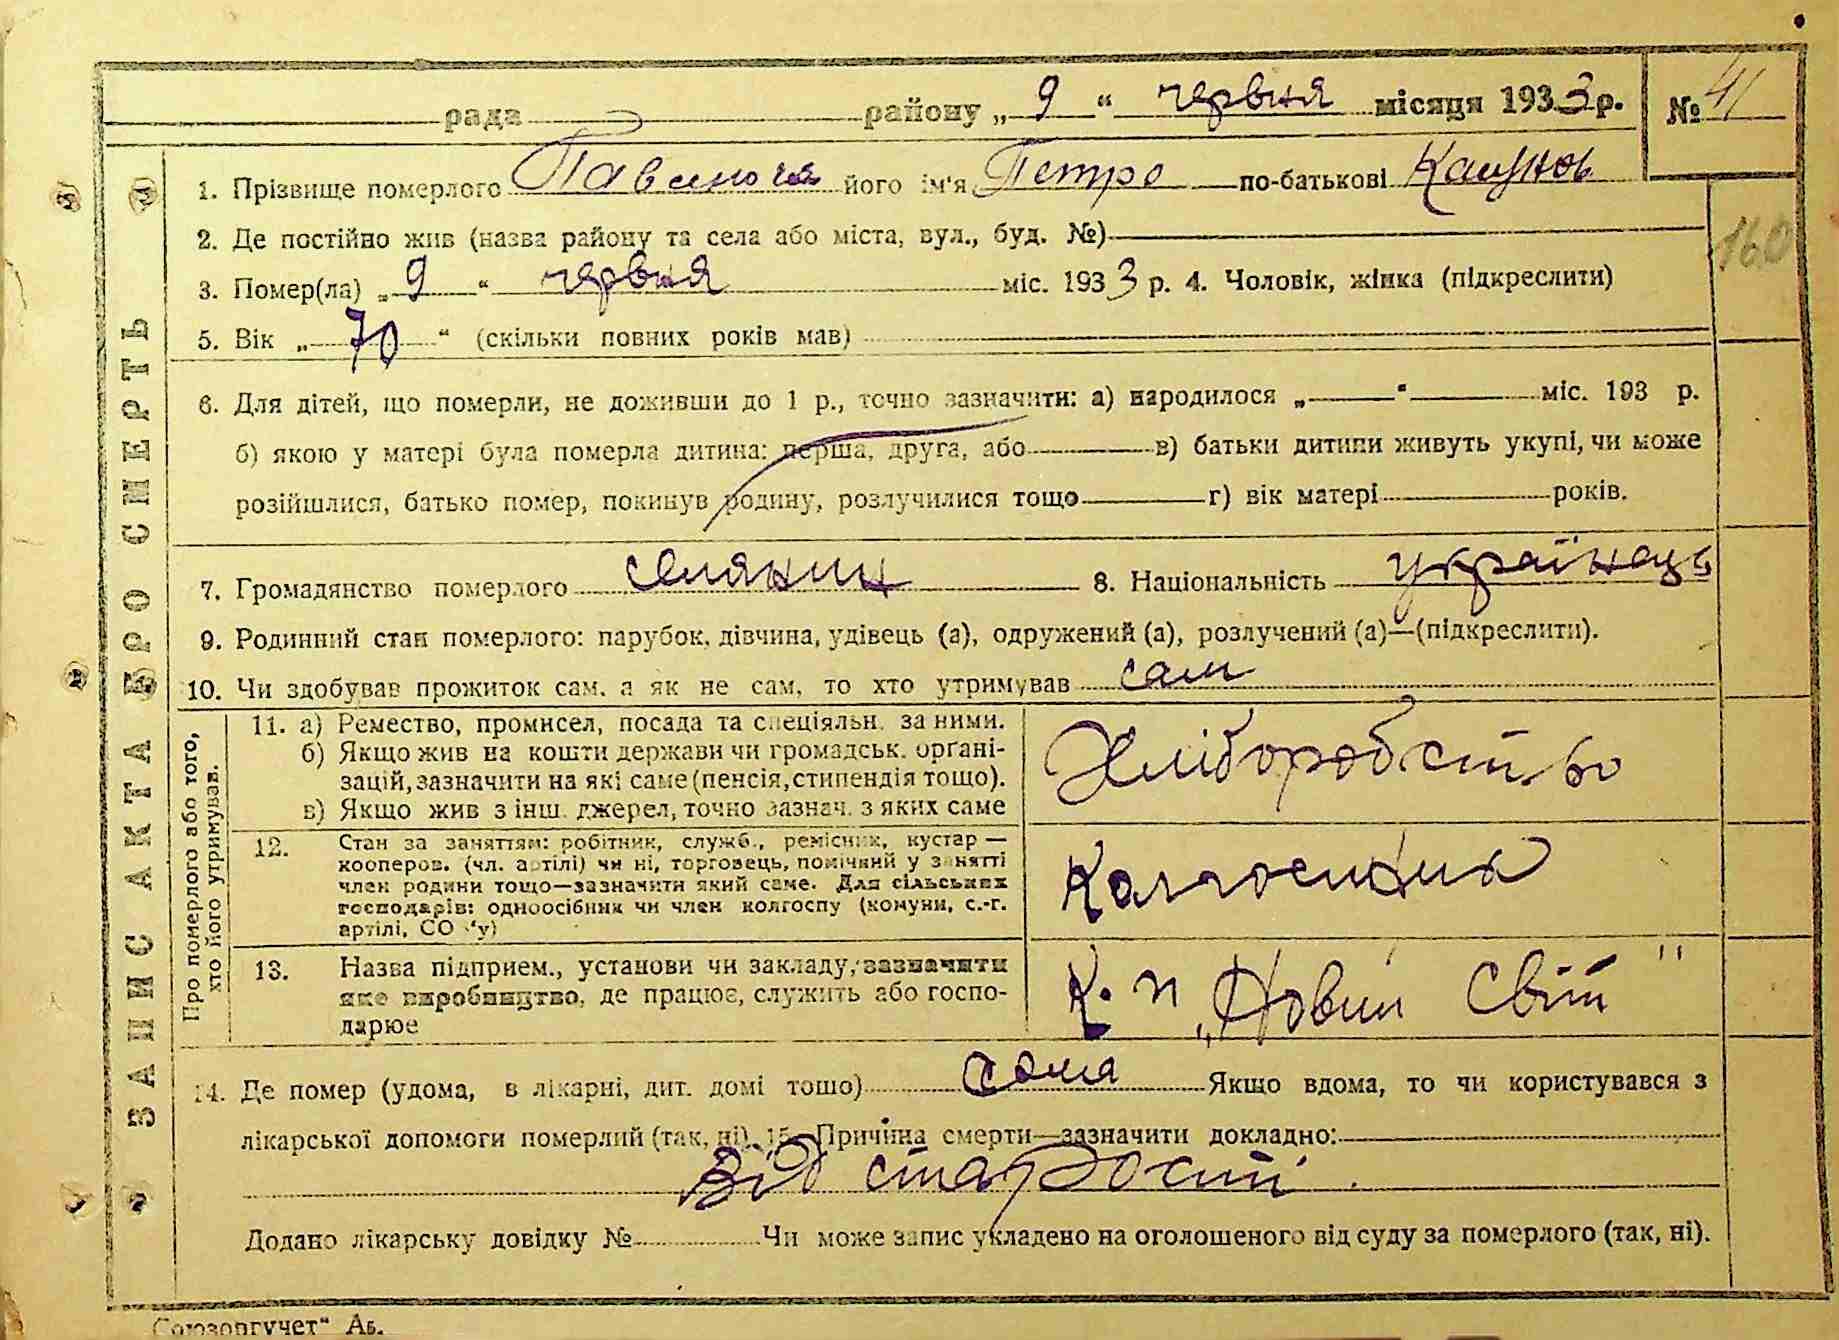 рада районну „ 9 “ червня місяця 1933 р. № 41
1. Прізвище померлого його ім'я Петро по-батькові
2. Де постійно жив (назва району та села або міста, вул., буд. №)
3. Помер(ла) „ 9 “ червня міс. 1933 р. 4. Чоловік, жінка (підкреслити)
5. Вік „ 70 “ (скільки повних років мав)
6. Для дітей, що померли, не доживши до 1 р., точно зазначити: а) народилося „ “ міс. 193 р.
б) якою у матері була померла дитина: перша, друга, або в) батьки дитини живуть укупі, чи може
розійшлися, батько помер, покинув родину, розлучилися тощо г) вік матері років.
7. Громадянство померлого селянин 8. Національність українець
9. Родинний стан померлого: парубок, дівчина, удівець (а), одружений (а), розлучений (а)—(підкреслити).
10. Чи здобував прожиток сам, а як не сам, то хто утримував сам
11. а) Ремество, промисел, посада та спеціяльн. за ними.
б) Якщо жив на кошти держави чи громадськ. органі-
зацій, зазначити на які саме (пенсія, стипендія тощо).
в) Якщо жив з інш. джерел, точно зазнач. з яких саме
Хліборобство
12. Стан за заняттям: робітник, служб., ремісник, кустар —
кооперов. (чл. артілі) чи ні, торговець, помічний у занятті
член родини тощо—зазначити який саме. Для сільських
господарів: одноосібник чи член колгоспу (комуни, с.-г.
артілі, СО 'у)
Колгоспник
13. Назва підприєм., установи чи закладу, зазначити
яке виробництво, де працює, служить або госпо-
дарює
К. п „Новий Світ"
14. Де помер (удома, в лікарні, дит. домі тощо) Якщо вдома, то чи користувався з
лікарської допомоги померлий (так, ні). 15. Причина смерти—зазначити докладно:
Від старости.
Додано лікарську довідку № Чи може запис укладено на оголошеного від суду за померлого (так, ні).
160
ЗАПИС АКТА ПРО СМЕРТЬ
Про померлого або того,
хто його утримував.
„Союзоргучет" Аб.